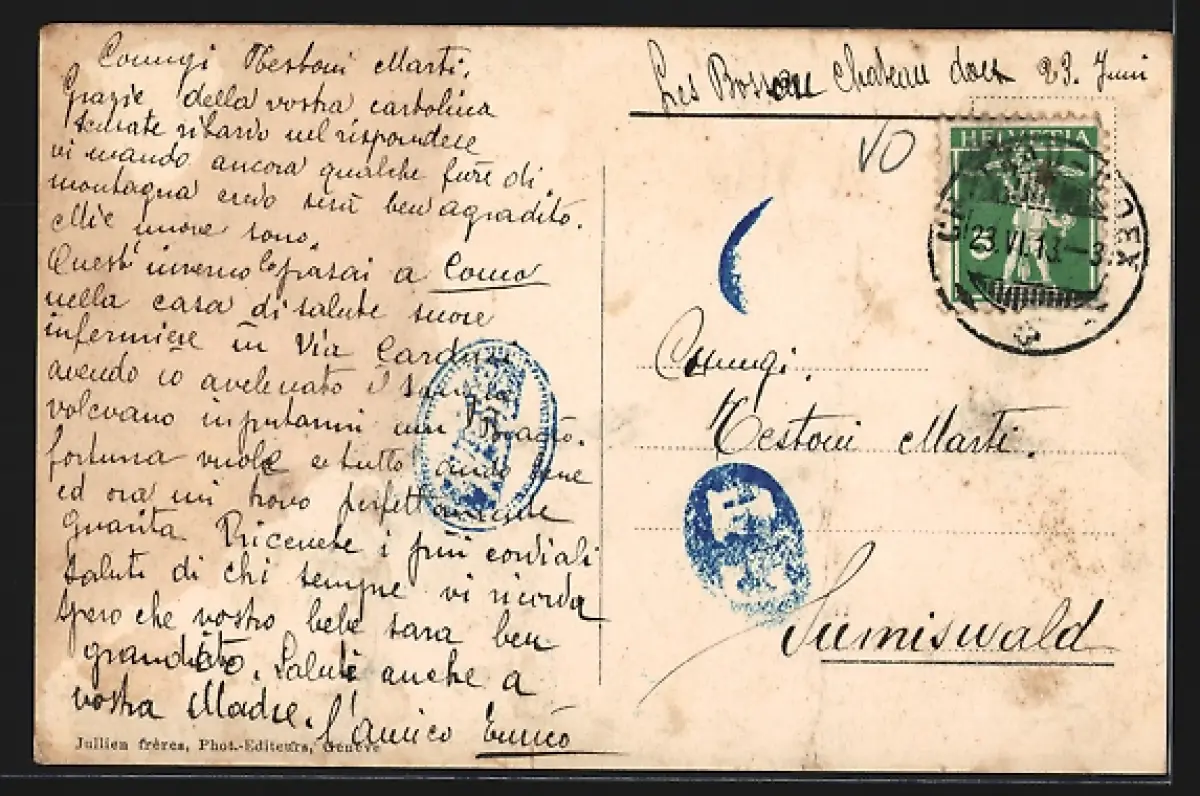 Coniugi Testoni Marti.
Grazie della vostra cartolina
scusate ritardo nel rispondere
vi mando ancora qualche fiore di
montagna credo sera ben agradito.
Mie
sono.
Quest' inverno lo pasai a Como
nella casa di salute suore
infermiere in Via Carducci
avendo io avelenato il sangue
volevano inputarmi un Braccio.
fortuna vuole e tutto andò bene
ed ora mi trovo perfettamente
guarita Ricevete i più cordiali
saluti di chi sempre vi ricorda
spero che vostro bebe sara ben
grandito. Saluti anche a
vostra Madre. l'amico Enrico
Jullien frères, Phot.-Editeurs, Genève
Les Bossons Chateau doex 23. Juni
VD
HELVETIA
5
23.VI.13.-3
Coniugi.
Testoni Marti.
Sumiswald